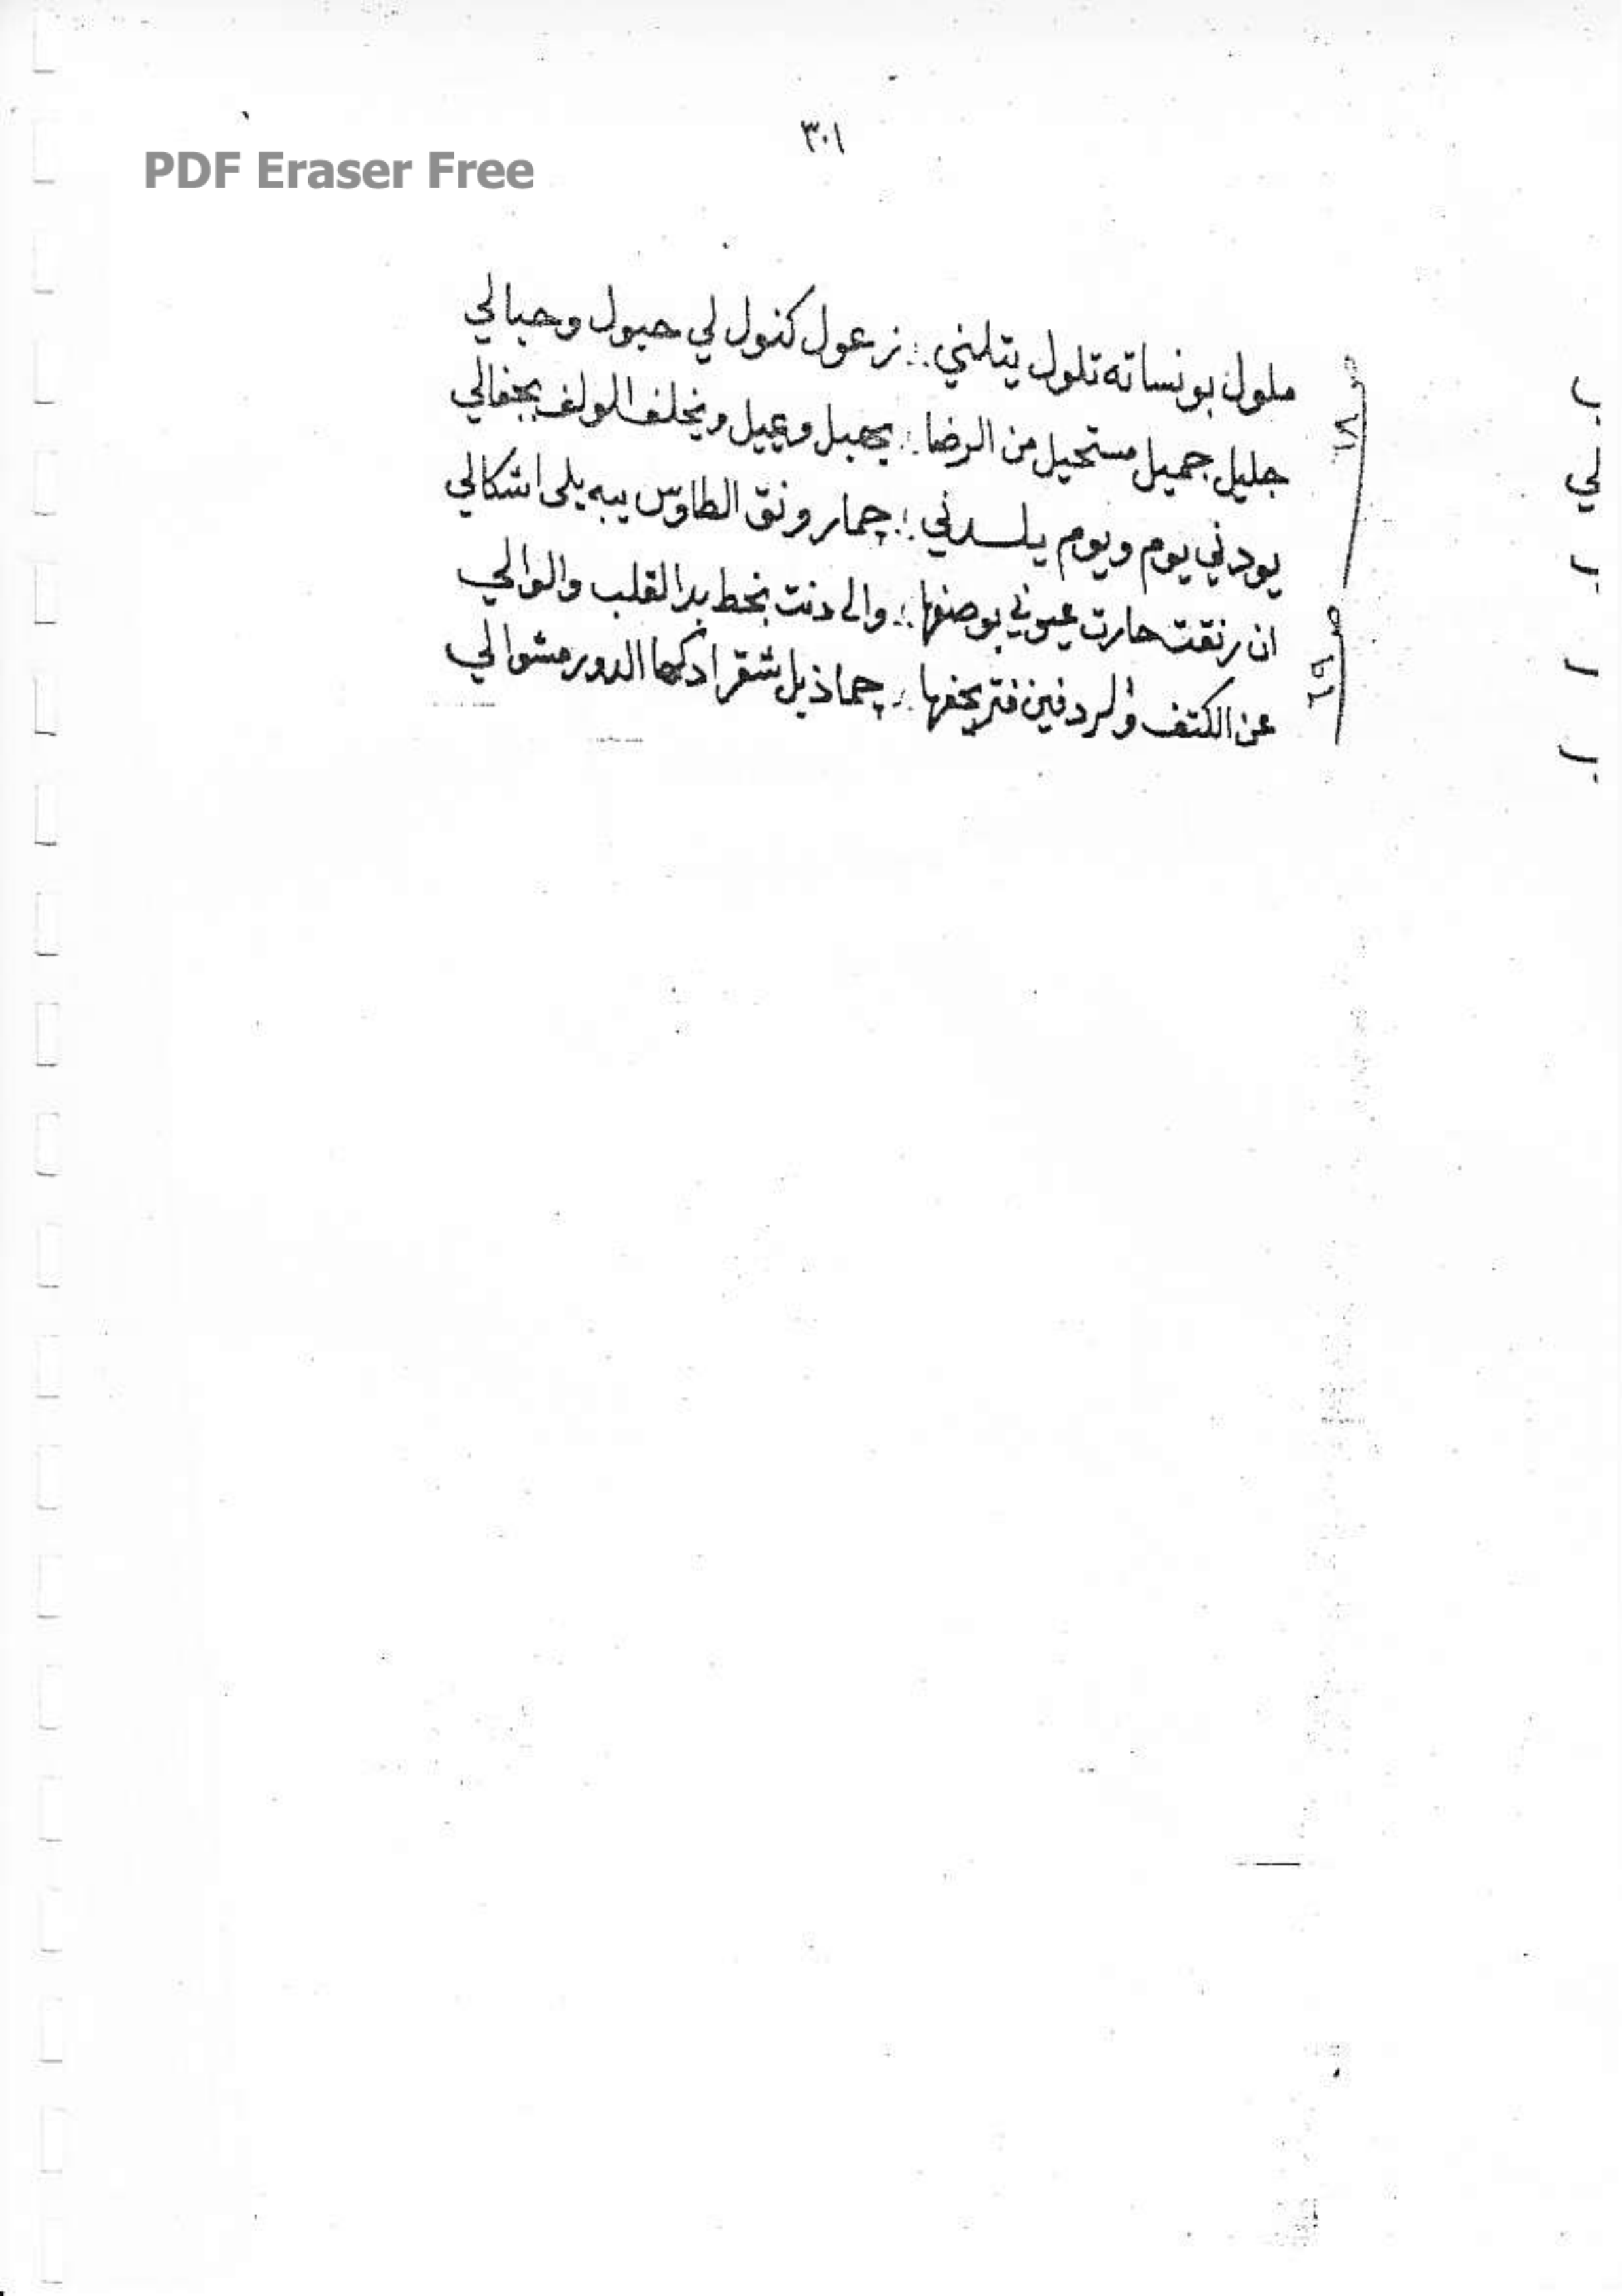 ٣٠١
PDF Eraser Free
ملول بونساته تلول يتلني ∴ زعول كنول لي حبول وحبالي
جليل جميل مستحيل من الرضا ∴ يجهبل وعيل ويخلف الولف بجفالي
يودني يوم ويوم يلسدني ∴ چمار ونق الطاوس يبه يلى اشكالي
ان رنقت حارت عيوني بوصفها ∴ والى دنت بخط بدا القلب والوالي
عن الكتف والردفين فتر يحفها ∴ چما ذيل شقرا دكها الدور مشوالي